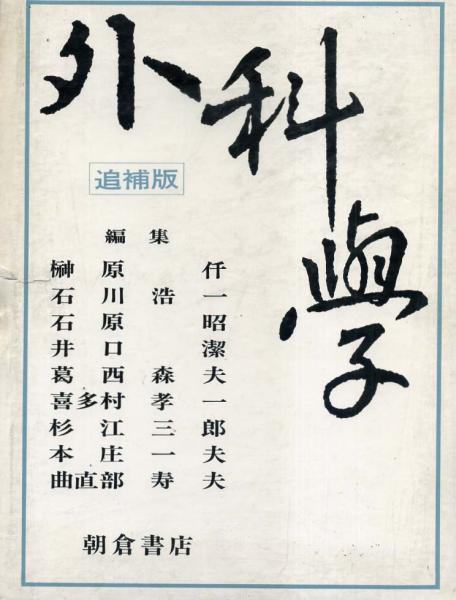 外科學
追補版
編集
榊原仟
石川浩一
石原昭
井口潔
葛西森夫
喜多村孝一
杉江三郎
本庄一夫
曲直部寿夫
朝倉書店